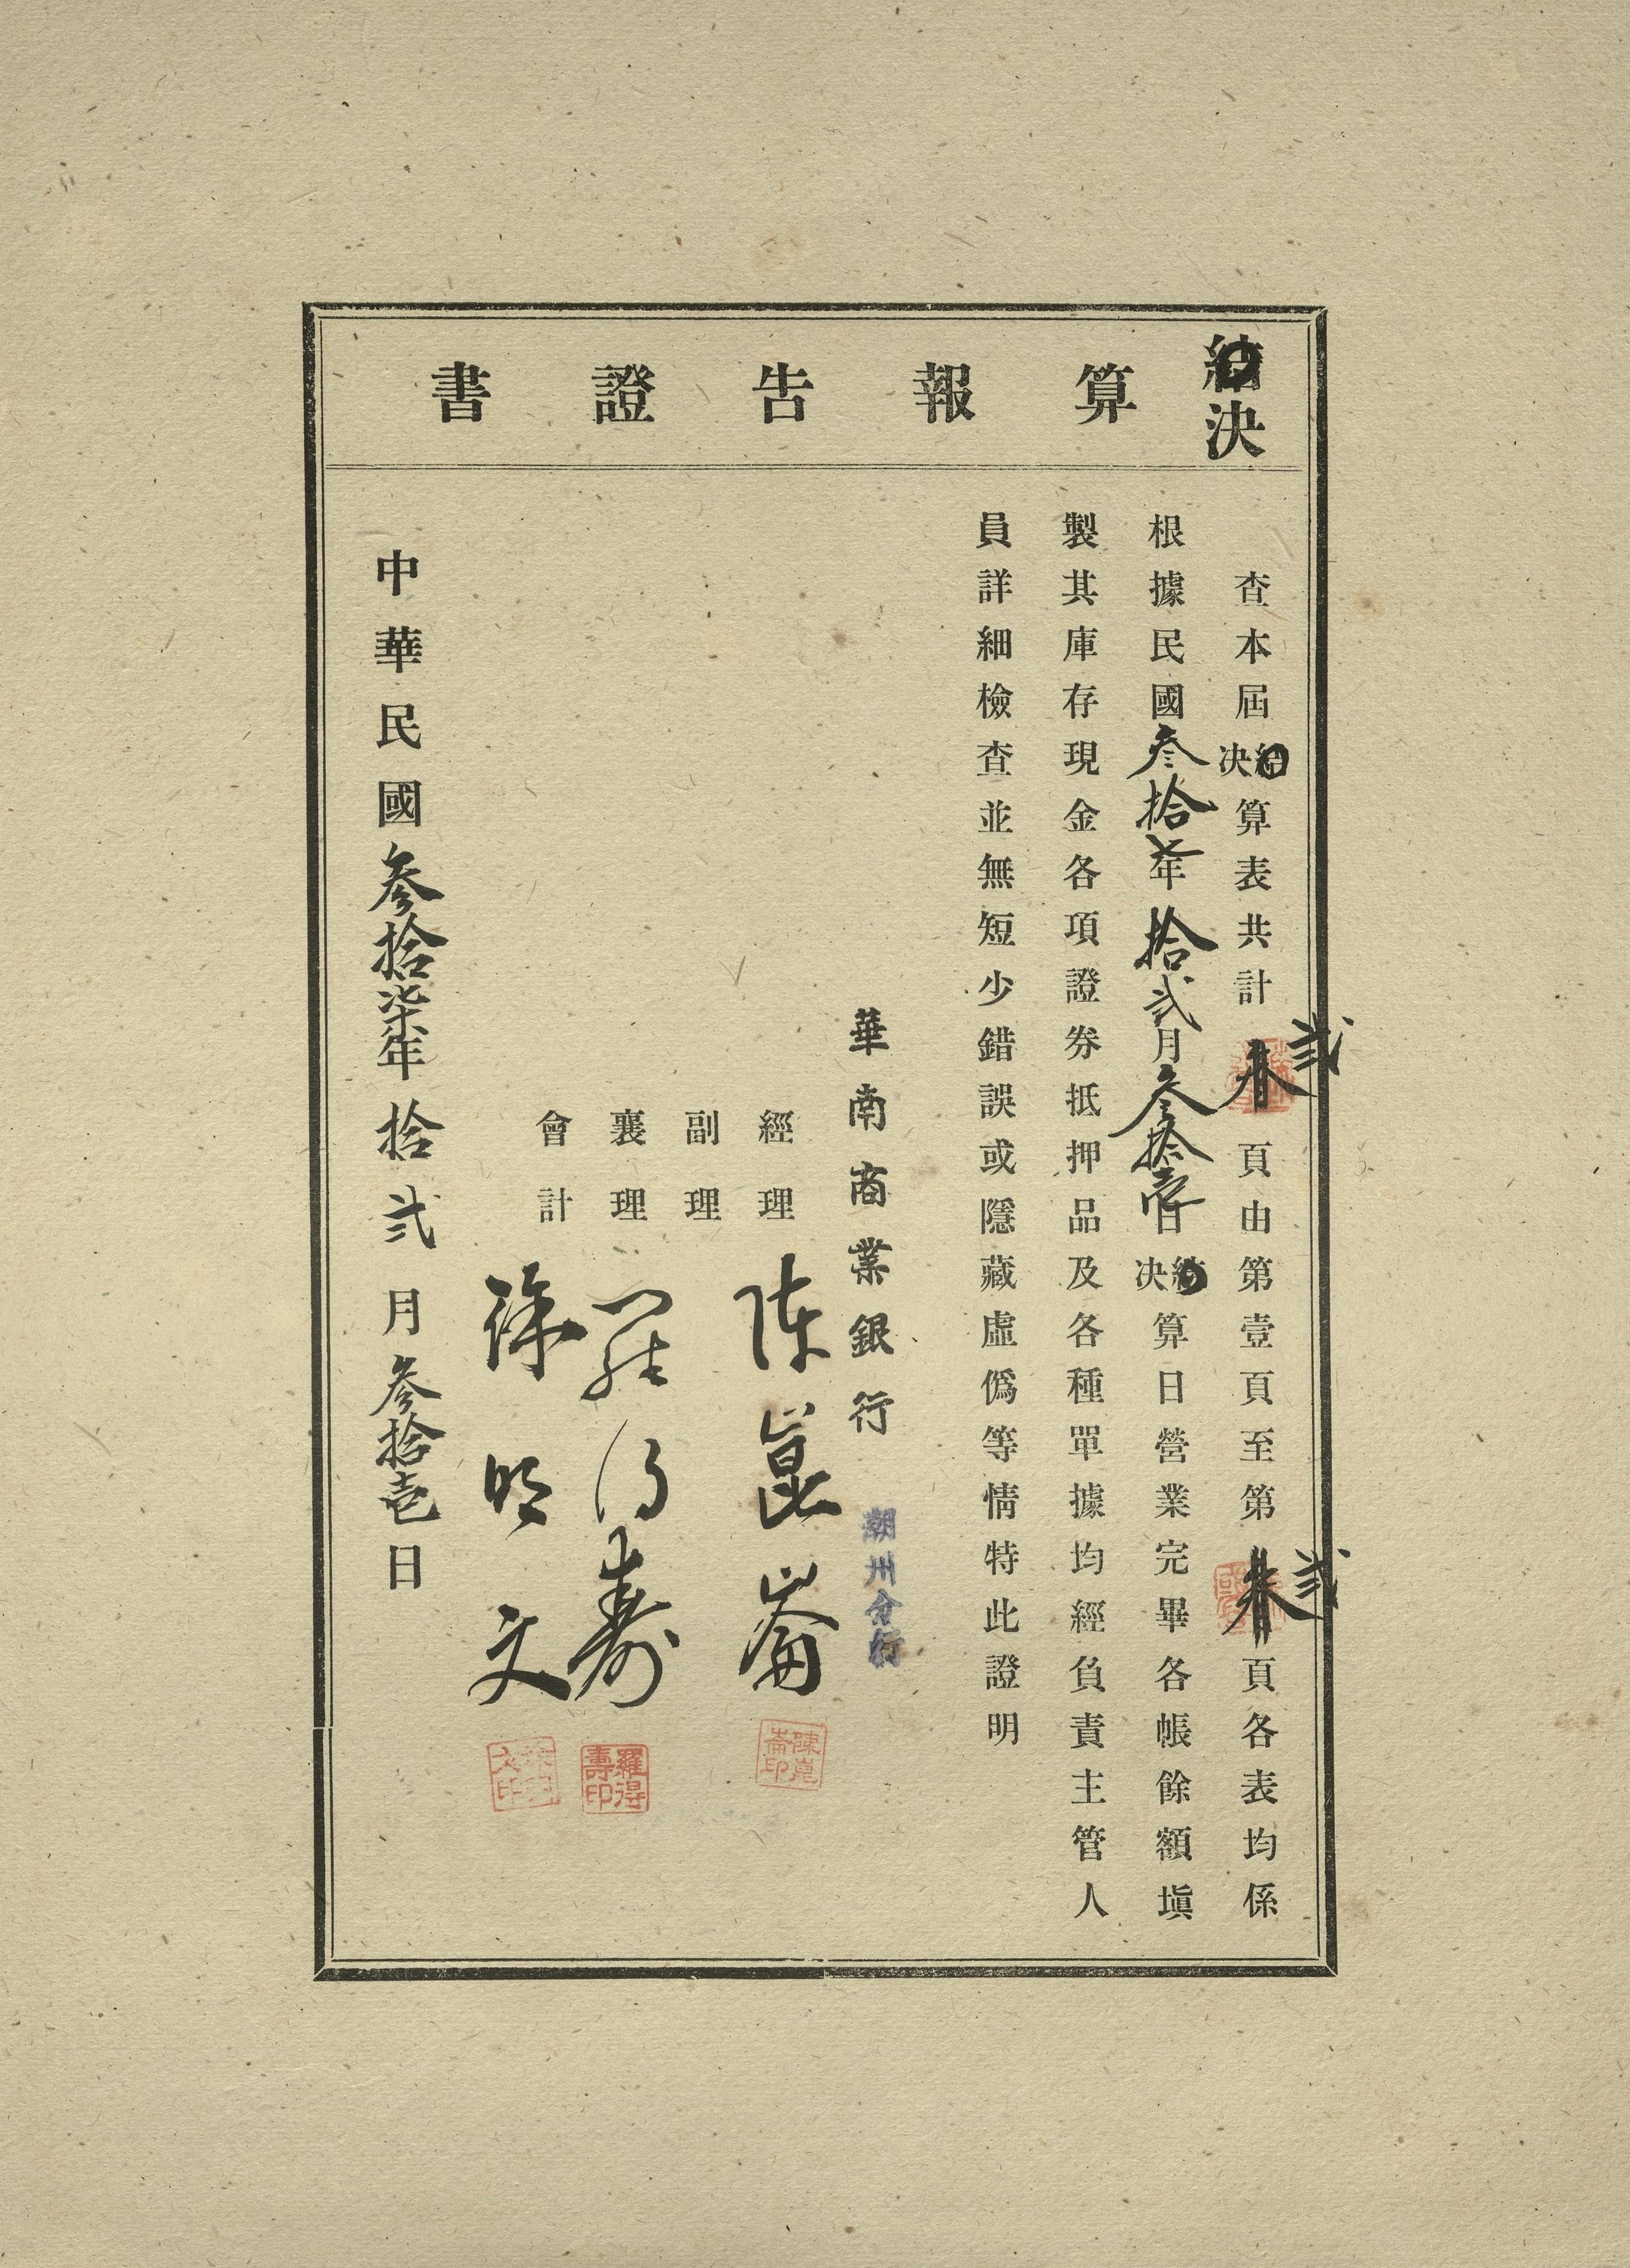 決算報告證書
查本屆決算表共計貳頁由第壹頁至第貳頁各表均係
根據民國叁拾七年拾貳月叁拾壹日決算日營業完畢各帳餘額塡
製其庫存現金各項證券抵押品及各種單據均經負責主管人
員詳細檢查並無短少錯誤或隱藏虛僞等情特此證明
華南商業銀行 潮州分行
經理 陳崑崙
陳崑崙印
副理
襄理 羅得壽
羅得壽印
會計 徐明文
中華民國叁拾柒年拾貳月叁拾壱日